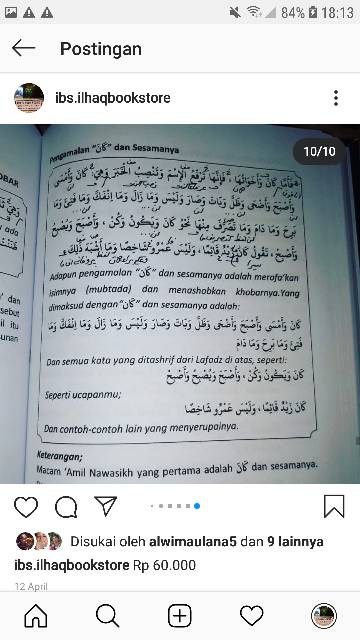 84% 18:13
Postingan
ibs.ilhaqbookstore
10/10
Pengamalan "كَانَ" dan Sesamanya
فَأَمَّا كَانَ وَأَخَوَاتُهَا، فَإِنَّهَا تَرْفَعُ الْإِسْمَ وَتَنْصِبُ الْخَبَرَ وَهِيَ: كَانَ وَأَمْسَى
وَأَصْبَحَ وَأَضْحَى وَظَلَّ وَبَاتَ وَصَارَ وَلَيْسَ وَمَا زَالَ وَمَا انْفَكَّ وَمَا فَتِئَ وَمَا
بَرِحَ وَمَا دَامَ وَمَا تَصَرَّفَ مِنْهَا نَحْوُ كَانَ وَيَكُوْنُ وَكُنْ، وَأَصْبَحَ وَيُصْبِحُ
وَأَصْبِحْ، تَقُوْلُ كَانَ زَيْدٌ قَائِمًا، وَلَيْسَ عَمْرٌو شَاخِصًا وَمَا أَشْبَهَ ذٰلِكَ
Adapun pengamalan "كَانَ" dan sesamanya adalah merofa'kan
isimnya (mubtada) dan menashobkan khobarnya.Yang
dimaksud dengan "كَانَ" dan sesamanya adalah:
كَانَ وَأَمْسَى وَأَصْبَحَ وَأَضْحَى وَظَلَّ وَبَاتَ وَصَارَ وَلَيْسَ وَمَا زَالَ وَمَا انْفَكَّ وَمَا
فَتِئَ وَمَا بَرِحَ وَمَا دَامَ
Dan semua kata yang ditashrif dari Lafadz di atas, seperti:
كَانَ وَيَكُوْنُ وَكُنْ، وَأَصْبَحَ وَيُصْبِحُ وَأَصْبِحْ
Seperti ucapanmu;
كَانَ زَيْدٌ قَائِمًا، وَلَيْسَ عَمْرٌو شَاخِصًا
Dan contoh-contoh lain yang menyerupainya.
Keterangan;
Macam 'Amil Nawasikh yang pertama adalah كَانَ dan sesamanya.
Disukai oleh alwimaulana5 dan 9 lainnya
ibs.ilhaqbookstore Rp 60.000
12 April